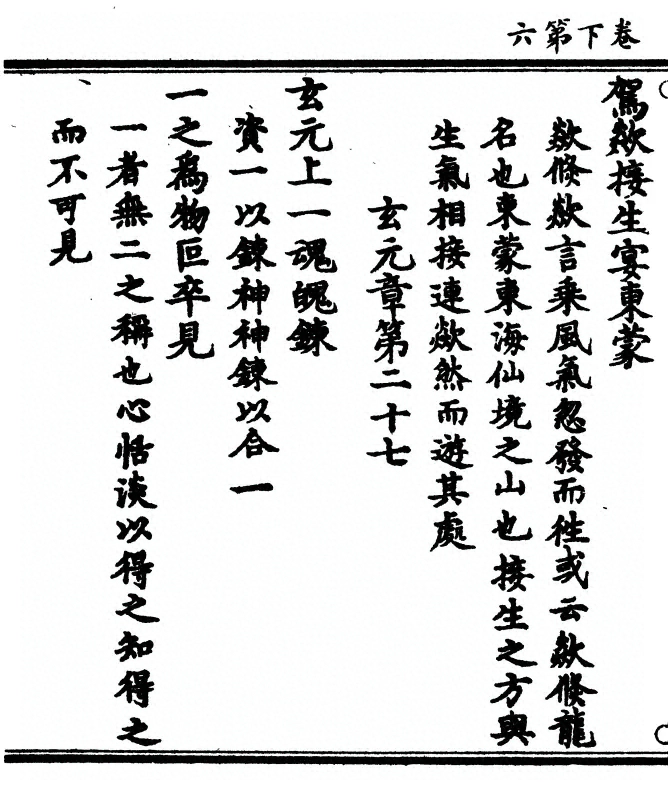 卷下第六
駕歘接生宴東蒙
歘倏歘言乘風氣忽發而徃或云歘倏龍
名也東蒙東海仙境之山也接生之方與
生氣相接連歘然而遊其處
玄元章第二十七
玄元上一魂魄鍊
資一以鍊神神鍊以合一
一之爲物叵卒見
一者無二之稱也心恬淡以得之知得之
而不可見